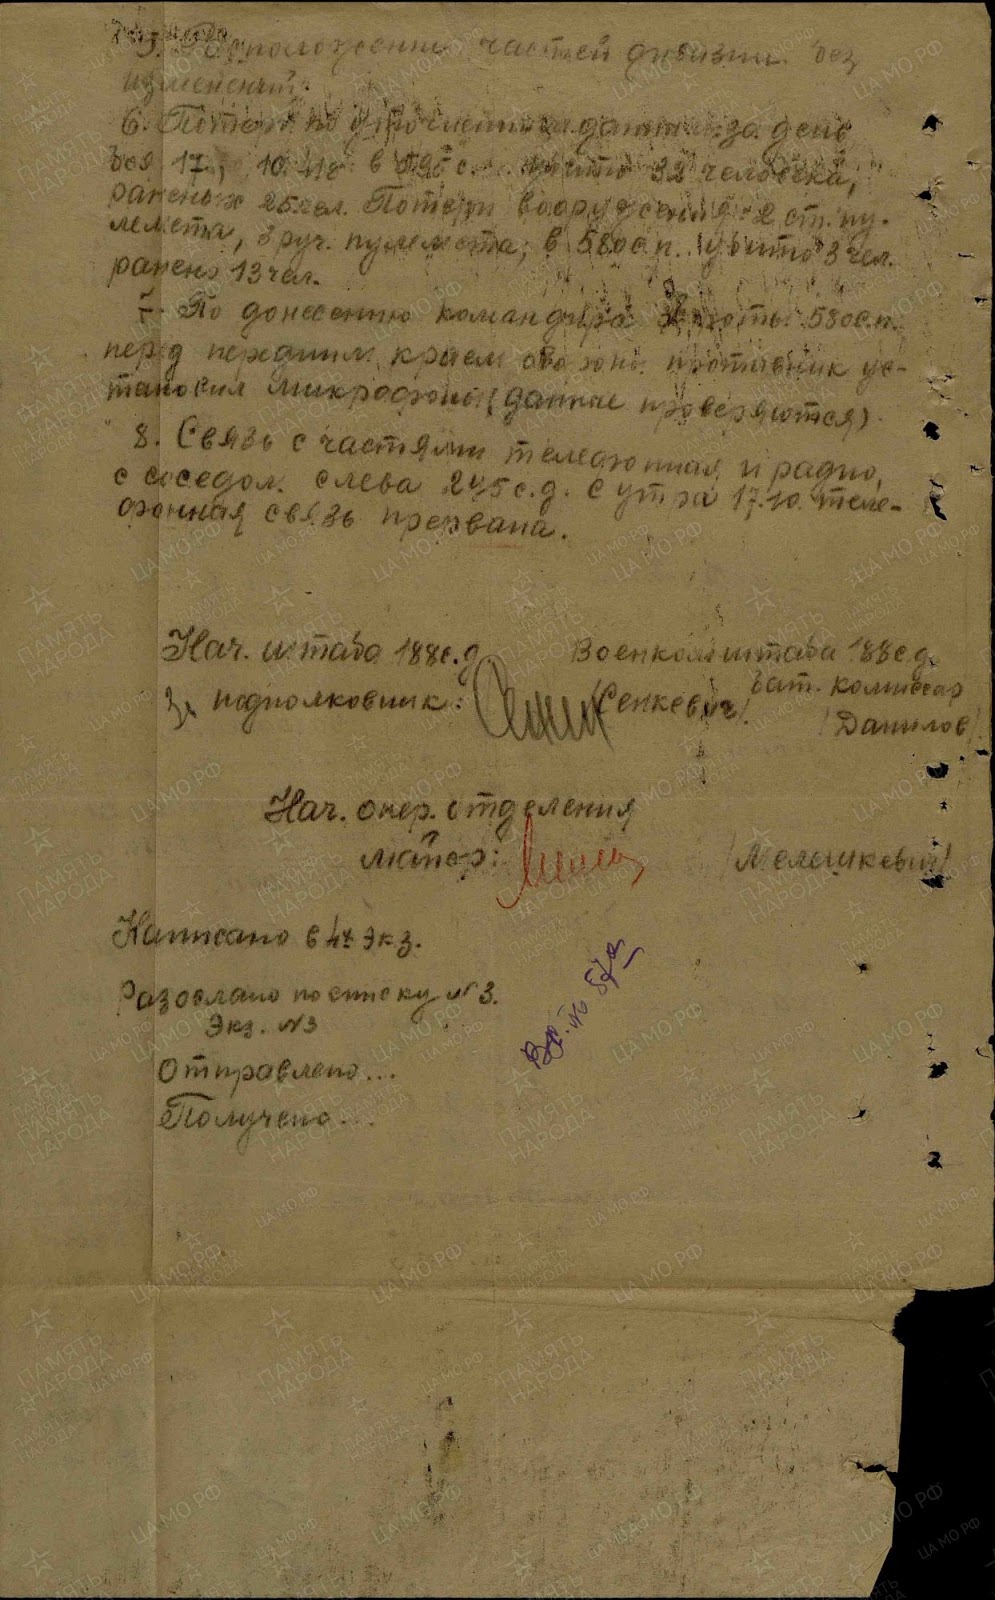 5. Расположение частей дивизии без
изменений.
6. Потери по уточненным данным за день
боя 17. 10.41г. в 595 с.п. убито 32 человека,
раненых 25 чел. Потери вооружения: 2 ст. пу-
лемета, 3 руч. пулемета; в 580с.п. убито 3 чел.
ранено 13 чел.
7. По донесению командира роты 580с.п.
перед передним краем обороны противник ус-
тановил микрофоны (данные проверяются).
8. Связь с частями телефонная и радио,
с соседом слева 245 с.д. с утра 17.10. теле-
фонная связь прервана.
Нач. штаба 188с.д.
Военком штаба 188с.д.
За подполковник:
/Сенкевич/
бат. комиссар
/Данилов/
Нач. опер. отделения
майор:
/Мелешкевич/
Написано в 4х экз.
Разослано по списку №3.
Экз. №3
Отправлено...
Получено...
ПАМЯТЬ НАРОДА
ЦА МО.РФ